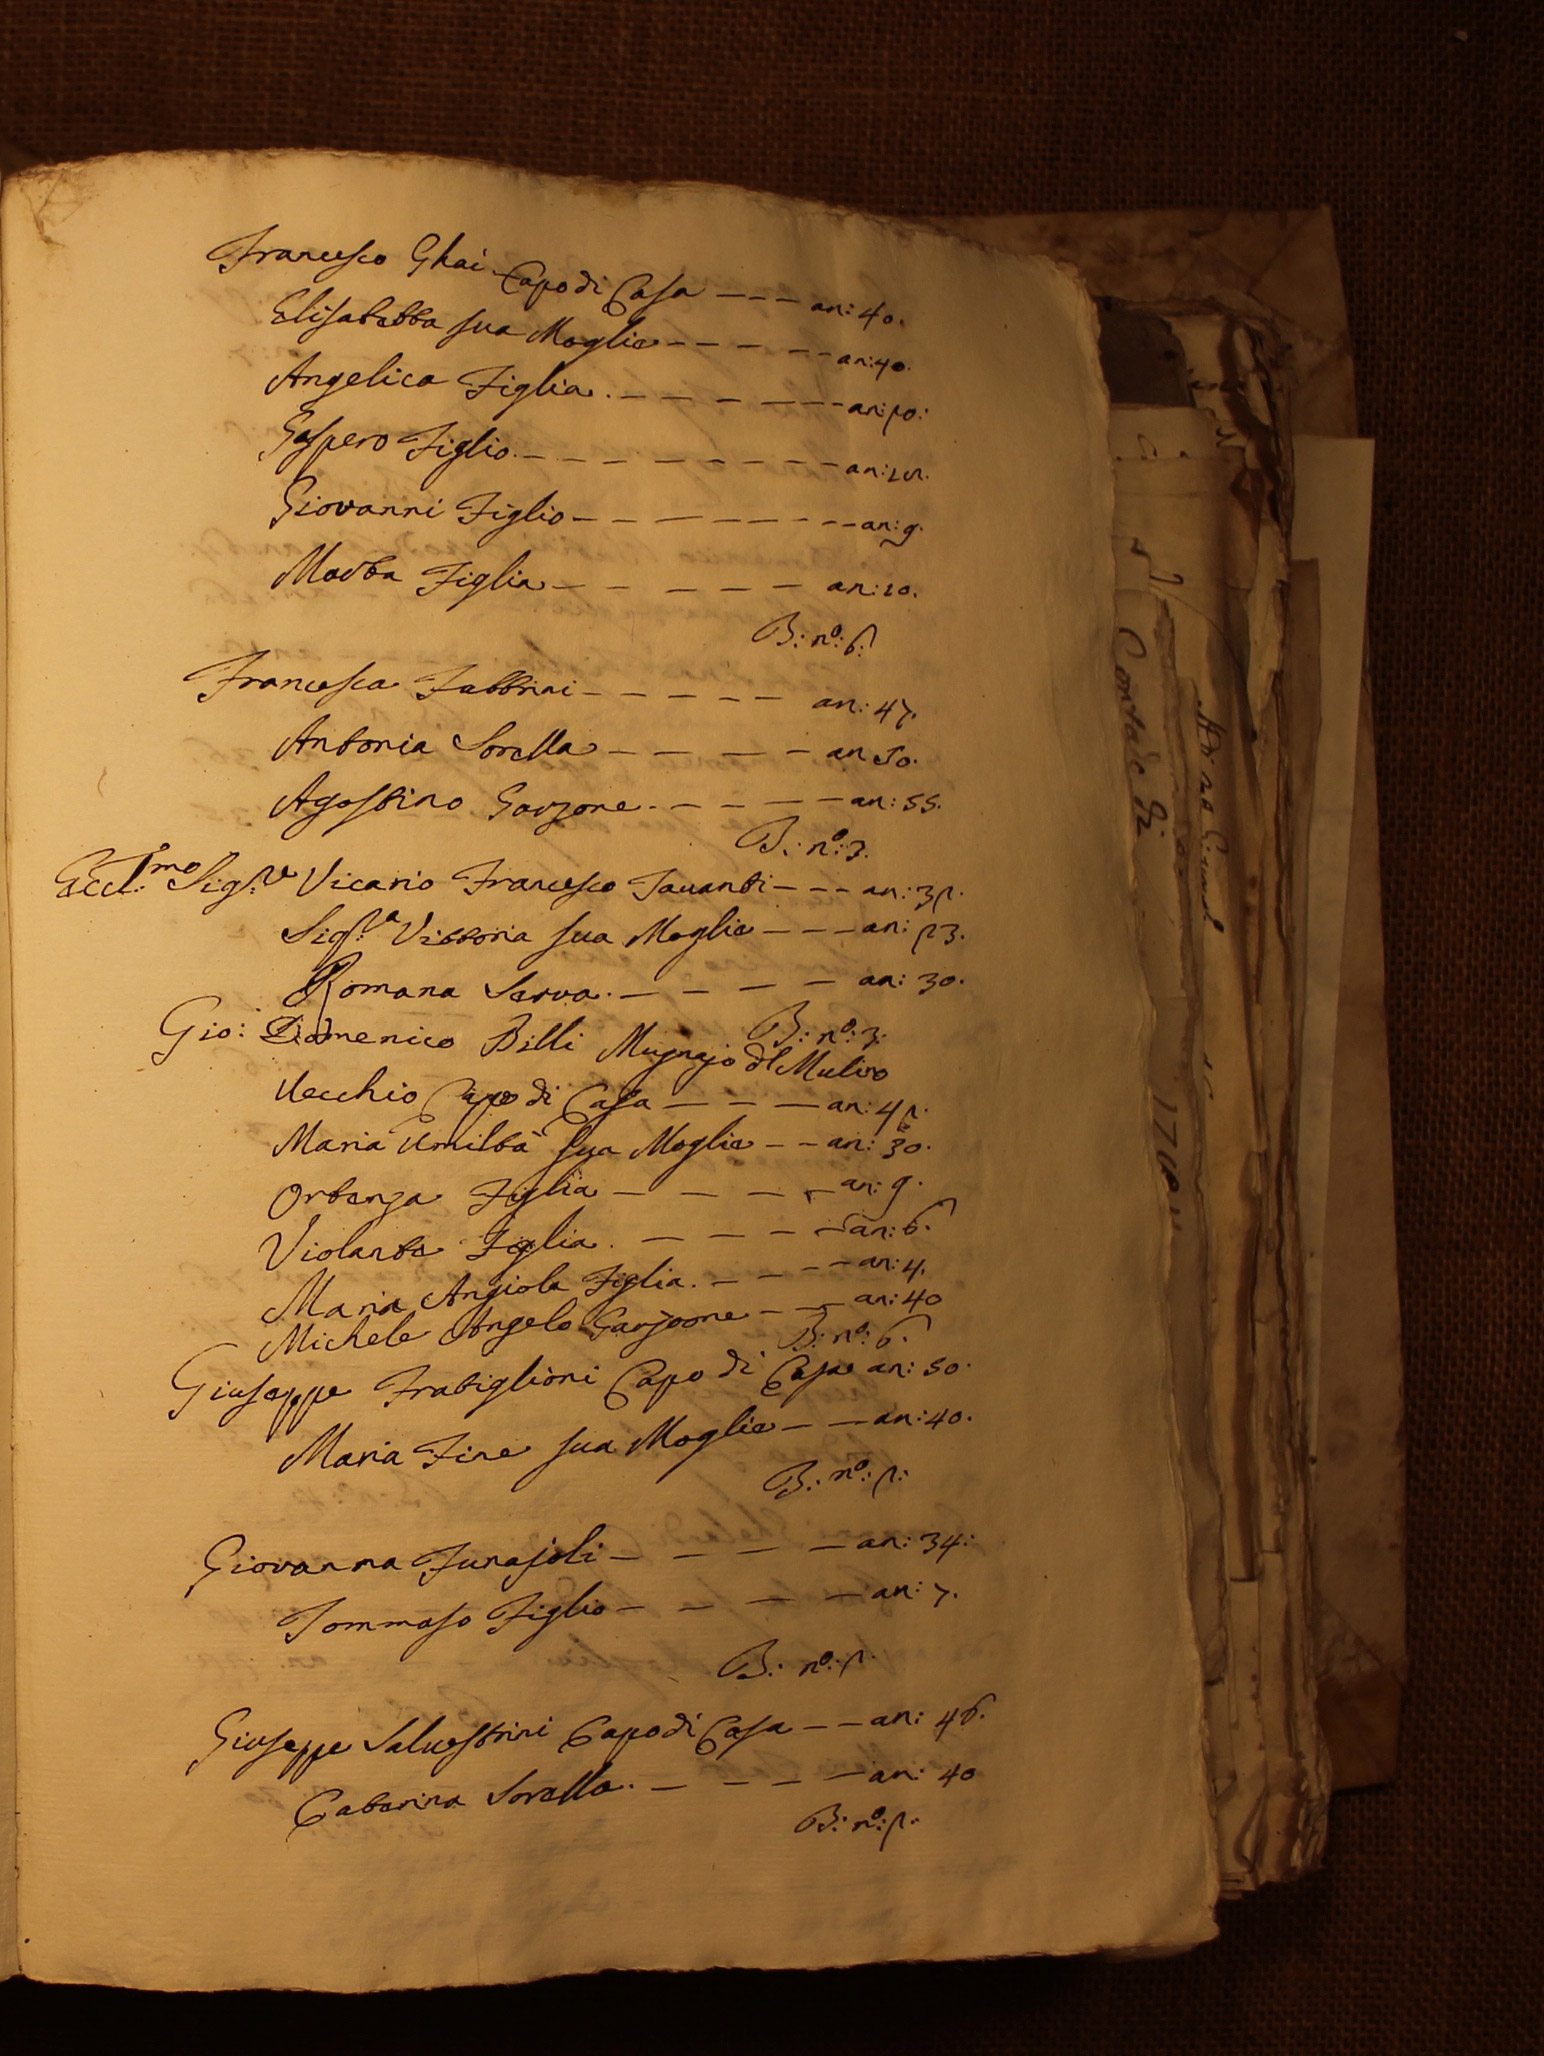 Francesco Ghai Capo di Casa --- an: 40.
Elisabetta sua Moglie ----- an: 40.
Angelica Figlia. ------ an: 20:
Gaspero Figlio. -------- an:
Giovanni Figlio ------- an: 9.
Marta Figlia ------ an: 10.
B: nº: 6.
Francesca Fabbrini ----- an: 47.
Antonia Sorella ----- an: 50.
Agostino Garzone. ----- an: 55.
B: nº: 3.
Eccl:mo Sig:re Vicario Francesco Tavanti --- an: 32.
Sig:ra Vittoria sua Moglie --- an: 23.
Romana Serva. ---- an: 30.
B: nº: 3.
Gio: Domenico Billi Mugnajo dl Mulino
Vecchio Capo di Casa --- an: 42.
Maria Umiltà sua Moglie -- an: 30.
Ortenza Figlia ---- an: 9.
Violante Figlia. ---- an: 6.
Maria Angiola Figlia. ---- an: 4.
Michele Angelo Garzone --- an: 40
B: nº: 6.
Giuseppe Fratiglioni Capo di Casa an: 50.
Maria Fine sua Moglie -- an: 40.
B: nº: 2:
Giovanna Funajoli ---- an: 34:
Tommaso Figlio ---- an: 7.
B: nº: 2.
Giuseppe Salvestrini Capo di Casa -- an: 46.
Caterina Sorella. ---- an: 40
B: nº: 2.
Contade di